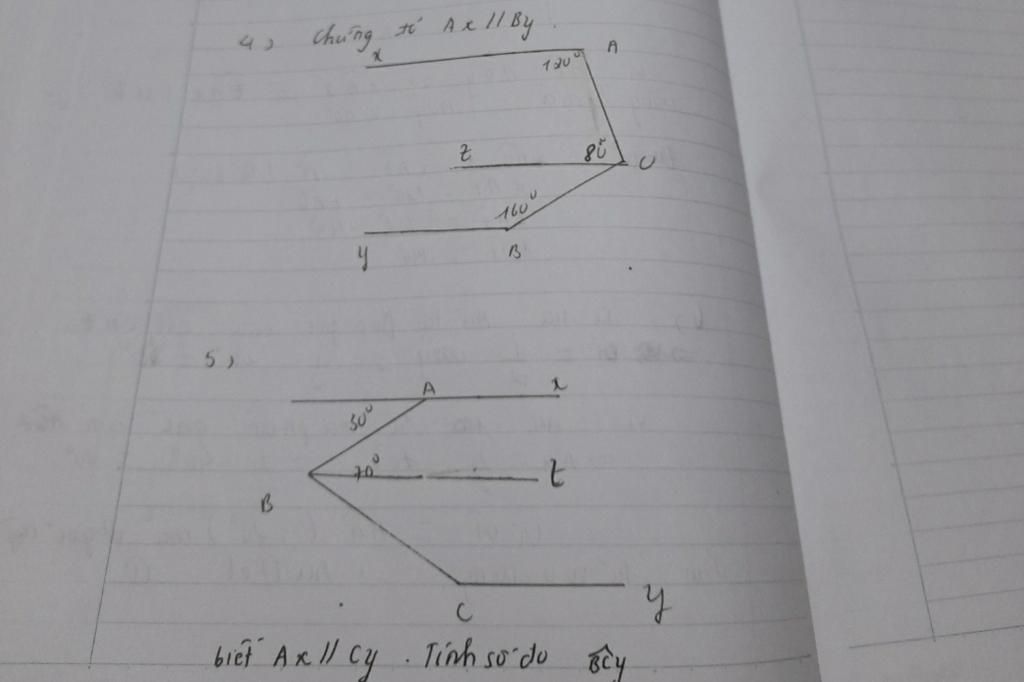 4) Chứng tỏ Ax // By.
x A
120°
z 80° O
160°
y B
5)
A x
30°
70° t
B
C y
biết Ax // Cy. Tính số đo BĈy